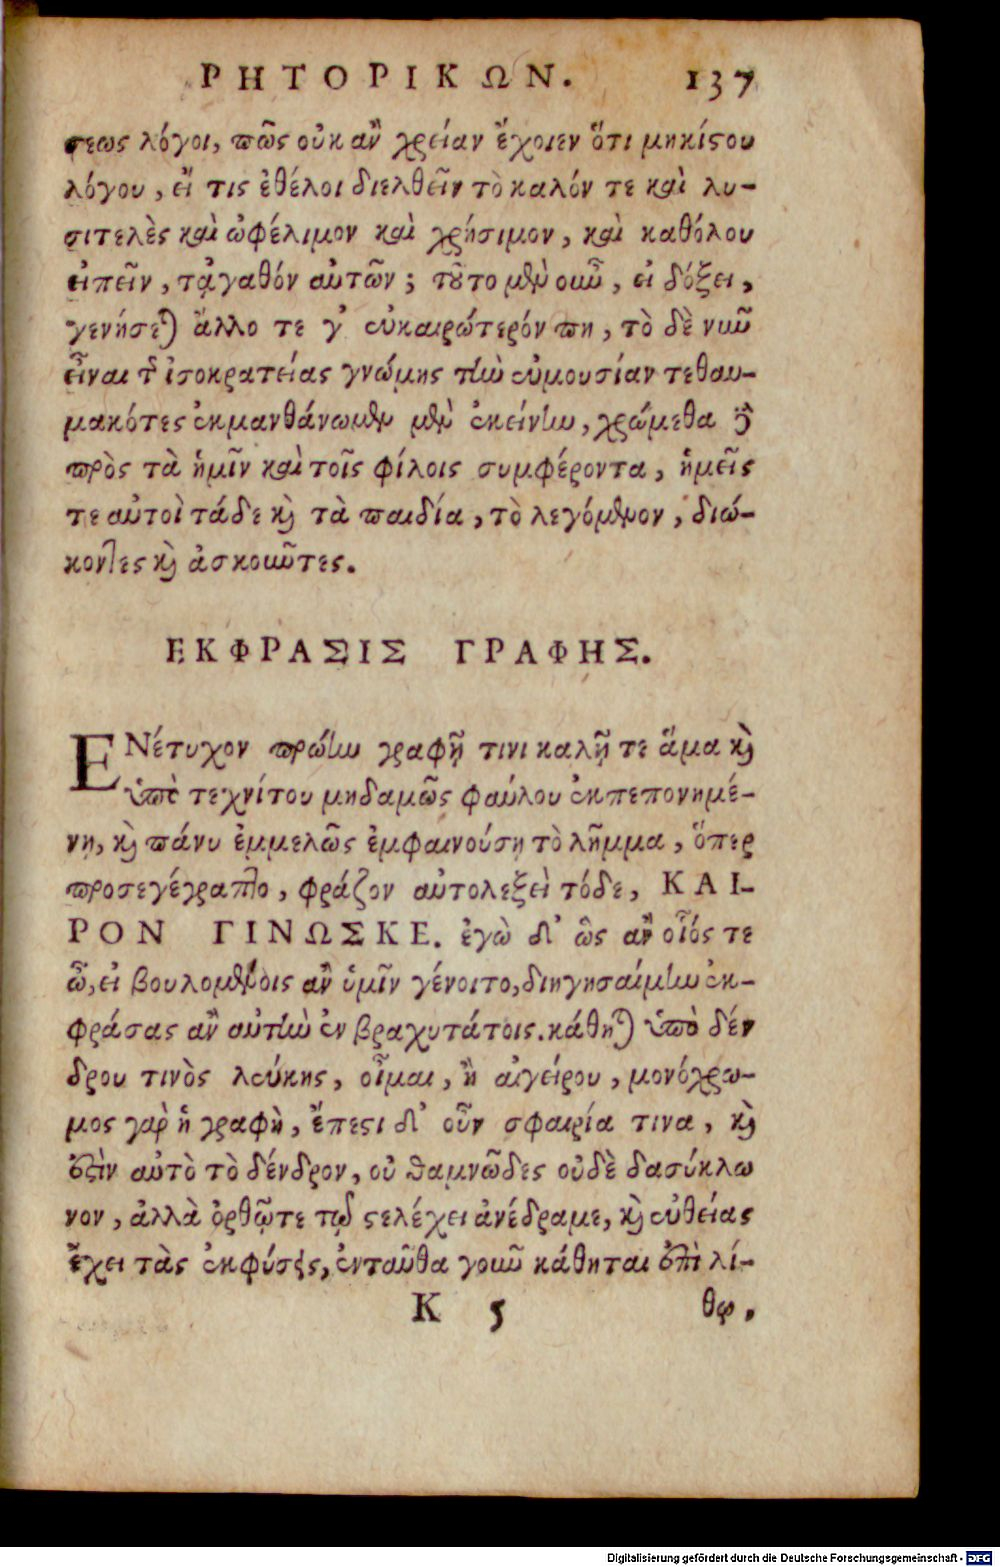 ΡΗΤΟΡΙΚΩΝ. 137
σεως λόγοι, πῶς οὐκ ἂν χρείαν ἔχοιεν ὅτι μηκίστου
λόγου, εἴ τις ἐθέλοι διελθεῖν τὸ καλόν τε καὶ λυ-
σιτελὲς καὶ ὠφέλιμον καὶ χρήσιμον, καὶ καθόλου
εἰπεῖν, τἀγαθόν αὐτῶν; τοῦτο μὲν οὖν, εἰ δόξει,
γενήσεται ἄλλο τε γ' εὐκαιρώτερόν πη, τὸ δὲ νῦν
εἶναι τῆς ἰσοκρατείας γνώμης τὴν εὐμουσίαν τεθαυ-
μακότες ἐκμανθάνωμεν μὲν ἐκείνην, χρώμεθα δὲ
πρὸς τὰ ἡμῖν καὶ τοῖς φίλοις συμφέροντα, ἡμεῖς
τε αὐτοὶ τάδε καὶ τὰ παιδία, τὸ λεγόμενον, διώ-
κοντες καὶ ἀσκοῦντες.
ΕΚΦΡΑΣΙΣ ΓΡΑΦΗΣ.
ΕΝέτυχον πρώην γραφῇ τινι καλῇ τε ἅμα καὶ
ὑπὸ τεχνίτου μηδαμῶς φαύλου ἐκπεπονημέ-
νη, καὶ πάνυ ἐμμελῶς ἐμφαινούσῃ τὸ λῆμμα, ὅπερ
προσεγέγραπτο, φράζον αὐτολεξεὶ τόδε, ΚΑΙ-
ΡΟΝ ΓΙΝΩΣΚΕ. ἐγὼ δ' ὣς ἂν οἷός τε
ὦ, εἰ βουλομένοις ἂν ὑμῖν γένοιτο, διηγησαίμην ἐκ-
φράσας ἂν αὐτὴν ἐν βραχυτάτοις. κάθηται ὑπὸ δέν
δρου τινὸς λεύκης, οἶμαι, ἢ αἰγείρου, μονόχρω-
μος γὰρ ἡ γραφὴ, ἔπεστι δ' οὖν σφαιρία τινα, καὶ
ἐστὶν αὐτὸ τὸ δένδρον, οὐ θαμνῶδες οὐδὲ δασύκλω
νον, ἀλλὰ ὀρθῷτε τῷ στελέχει ἀνέδραμε, καὶ εὐθείας
ἔχει τὰς ἐκφύσεις, ἐνταῦθα γοῦν κάθηται ἐπὶ λί-
Κ 5 θῳ,
Digitalisierung gefördert durch die Deutsche Forschungsgemeinschaft - DFG